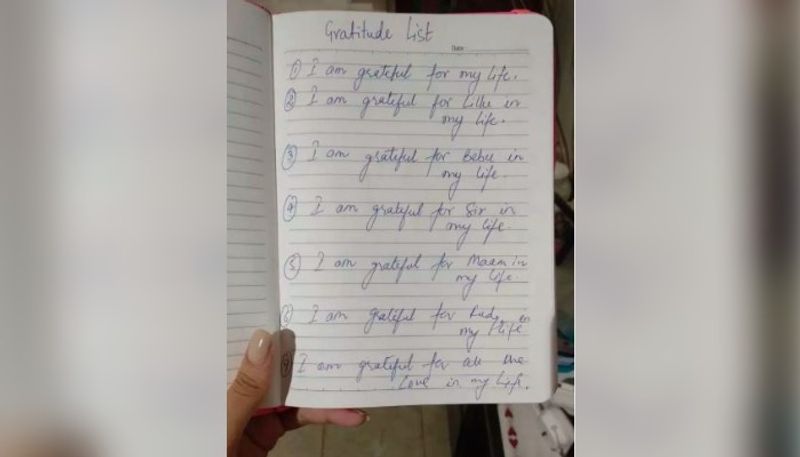 Gratitude List
Date:
① I am grateful for my life.
② I am grateful for Lillu in
my life.
③ I am grateful for Bebu in
my life.
④ I am grateful for Sir in
my life.
⑤ I am grateful for Maam in
my life.
I am grateful for in
my life
I am grateful for all the
Love in my life.